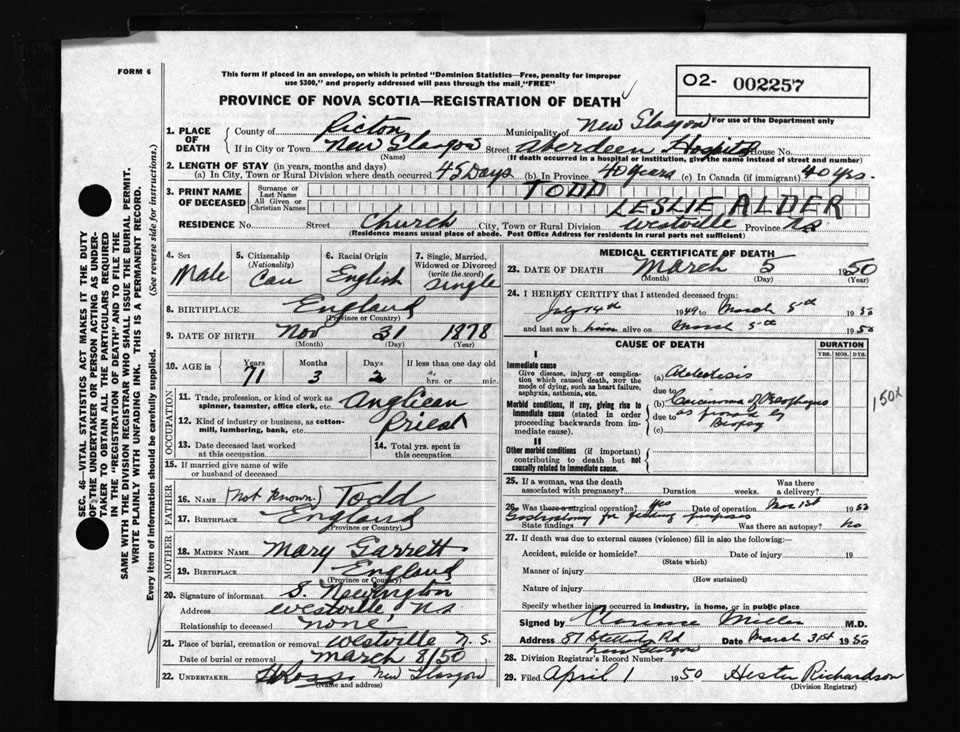 FORM 6
This form if placed in an envelope, on which is printed "Dominion Statistics—Free, penalty for improper
use $300," and properly addressed will pass through the mail "FREE"
O2- 002257
For use of the Department only
PROVINCE OF NOVA SCOTIA—REGISTRATION OF DEATH
1. PLACE OF DEATH County of Picton Municipality of New Glasgow
If in City or Town New Glasgow Street Aberdeen Hospital House No.
(Name) (If death occurred in a hospital or institution, give the name instead of street and number)
2. LENGTH OF STAY (in years, months and days)
(a) In City, Town or Rural Division where death occurred 45 Days (b) In Province 40 years (c) In Canada (if immigrant) 40 yrs.
3. PRINT NAME OF DECEASED Surname or Last Name TODD
All Given or Christian Names LESLIE ALDER
RESIDENCE No. Street Church City, Town or Rural Division Westville Province NS
(Residence means usual place of abode. Post Office Address for residents in rural parts not sufficient)
4. Sex Male
5. Citizenship (Nationality) Can
6. Racial Origin English
7. Single, Married, Widowed or Divorced (write the word) Single
8. BIRTHPLACE England
(Province or Country)
9. DATE OF BIRTH Nov 31 1878
(Month) (Day) (Year)
10. AGE in Years 71 Months 3 Days 2 If less than one day old
hrs. or min.
OCCUPATION
11. Trade, profession, or kind of work as spinner, teamster, office clerk, etc. Anglican
12. Kind of industry or business, as cotton-mill, lumbering, bank, etc. Priest
13. Date deceased last worked at this occupation
14. Total yrs. spent in this occupation
15. If married give name of wife or husband of deceased
FATHER
16. NAME (Not Known) Todd
17. BIRTHPLACE England
(Province or Country)
MOTHER
18. MAIDEN NAME Mary Garrett
19. BIRTHPLACE England
(Province or Country)
20. Signature of informant S. Newington
Address Westville, NS
Relationship to deceased "none"
21. Place of burial, cremation or removal Westville N.S.
Date of burial or removal March 8/50
22. UNDERTAKER H Ross New Glasgow
(Name and address)
MEDICAL CERTIFICATE OF DEATH
23. DATE OF DEATH March 5 1950
(Month) (Day) (Year)
24. I HEREBY CERTIFY that I attended deceased from:
July 14th 1949 to March 5th 1950
and last saw him alive on March 5th 1950
CAUSE OF DEATH DURATION
YRS. MOS. DYS.
I
Immediate cause
Give disease, injury or complication which caused death, not the mode of dying, such as heart failure, asphyxia, asthenia, etc.
(a) Atelectisis
due to
Morbid conditions, if any, giving rise to immediate cause (stated in order proceeding backwards from immediate cause).
(b) Carcinoma of Oesophagus
due to as proved by
(c) Biopsy
150X
II
Other morbid conditions (if important) contributing to death but not causally related to immediate cause.
25. If a woman, was the death associated with pregnancy? Duration weeks. Was there a delivery?
26. Was there a surgical operation? Yes Date of operation Mar 1st 1950
State findings Gastrostomy for feeding purposes Was there an autopsy? No
27. If death was due to external causes (violence) fill in also the following:
Accident, suicide or homicide? Date of injury 19
(State which)
Manner of injury
(How sustained)
Nature of injury
Specify whether injury occurred in industry, in home, or in public place
Signed by Clarence Miller M.D.
Address 87 Rd New Glasgow Date March 31st 1950
28. Division Registrar's Record Number
29. Filed April 1 1950 Hester Richardson
(Division Registrar)
SEC. 46—VITAL STATISTICS ACT MAKES IT THE DUTY
OF THE UNDERTAKER OR PERSON ACTING AS UNDER-
TAKER TO OBTAIN ALL THE PARTICULARS REQUIRED
IN THE "REGISTRATION OF DEATH" AND TO FILE THE
SAME WITH THE DIVISION REGISTRAR WHO SHALL ISSUE THE BURIAL PERMIT.
WRITE PLAINLY WITH UNFADING INK. THIS IS A PERMANENT RECORD.
Every item of information should be carefully supplied. (See reverse side for instructions.)